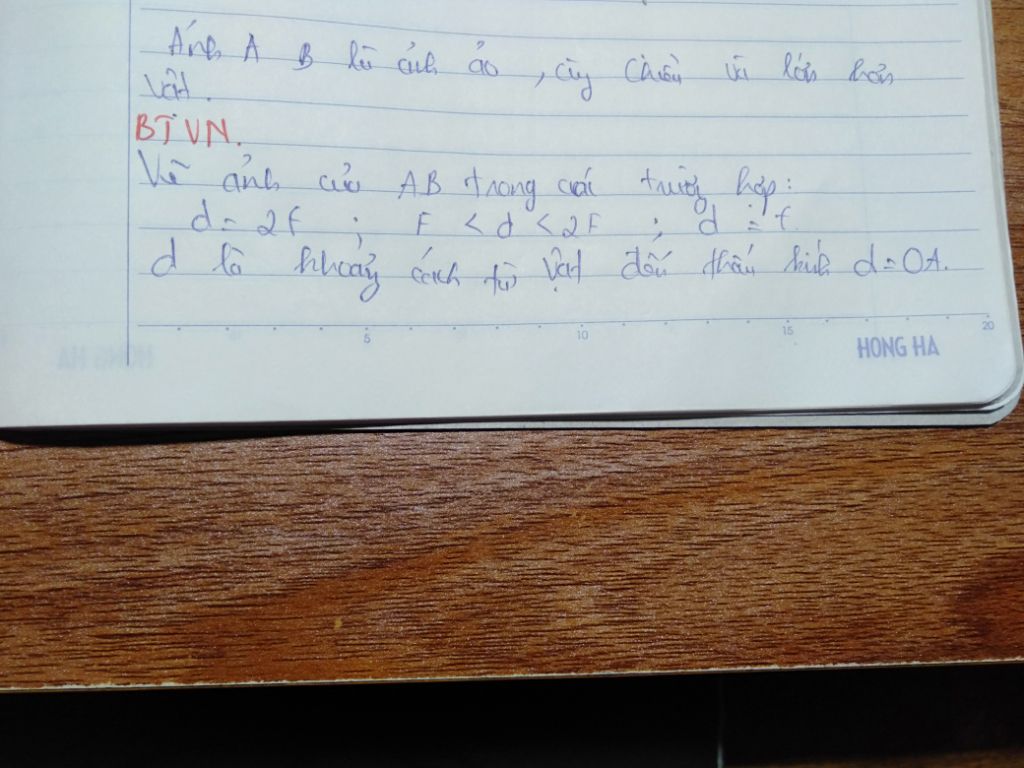 Ảnh A B là ảnh ảo, cùng chiều và lớn hơn
vật.
BTVN.
Vẽ ảnh của AB trong các trường hợp:
d = 2f ; F < d < 2F ; d = f.
d là khoảng cách từ vật đến thấu kính d = OA.
5 10 15 20
HONG HA